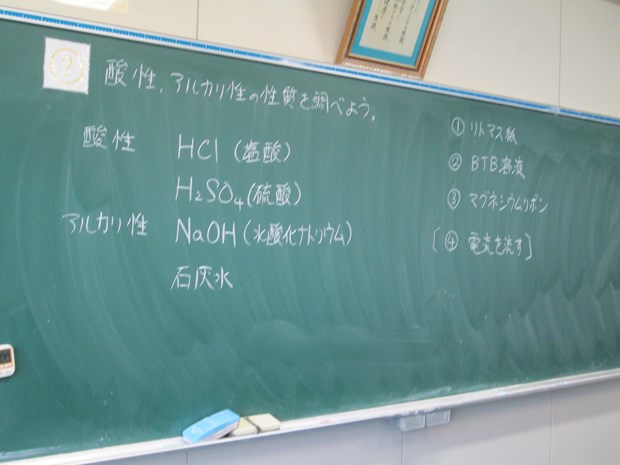 ?
酸性,アルカリ性の性質を調べよう。
酸性 HCl (塩酸)
H₂SO₄(硫酸)
アルカリ性 NaOH (水酸化ナトリウム)
石灰水
① リトマス紙
② BTB溶液
③ マグネシウムリボン
[④ 電流を流す]